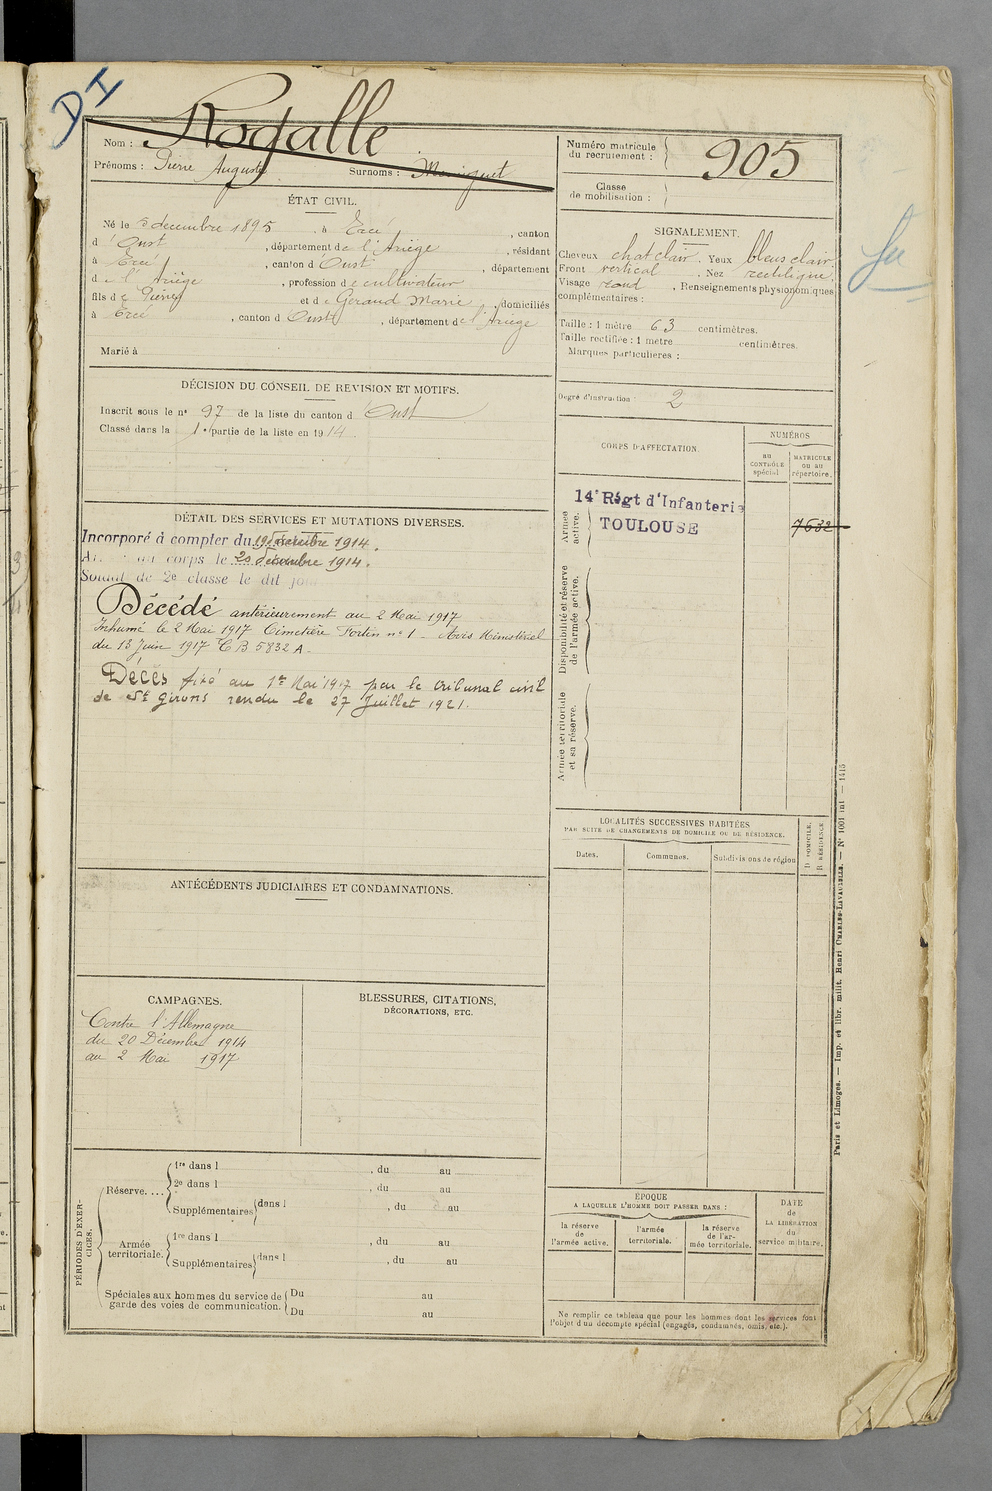 DI
Nom : Rogalle
Prénoms : Pierre Auguste Surnoms :
Numéro matricule du recrutement : 905
Classe de mobilisation :
ÉTAT CIVIL.
Né le 5 decembre 1895, à Ercé, canton
d'Oust, département de l'Ariège, résidant
à Ercé, canton d'Oust, département
de l'Ariège, profession de cultivateur
fils de Pierre et de Geraud Marie, domiciliés
à Ercé, canton d'Oust, département de l'Ariège
Marié à
SIGNALEMENT.
Cheveux chat clair. Yeux bleus clair
Front vertical. Nez rectiligne
Visage rond, Renseignements physionomiques
complémentaires :
Taille : 1 mètre 63 centimètres.
Taille rectifiée : 1 mètre centimètres.
Marques particulières :
Degré d'instruction : 2
DÉCISION DU CONSEIL DE REVISION ET MOTIFS.
Inscrit sous le n° 97 de la liste du canton d'Oust
Classé dans la 1e partie de la liste en 1914
CORPS D'AFFECTATION.
NUMÉROS
au CONTRÔLE spécial.
MATRICULE ou au répertoire.
Armée active.
14e Régt d'Infanterie
TOULOUSE
7632
Disponibilité et réserve de l'armée active.
Armée territoriale et sa réserve.
DÉTAIL DES SERVICES ET MUTATIONS DIVERSES.
Incorporé à compter du 19 décembre 1914.
au corps le 20 décembre 1914.
Soldat de 2e classe le dit jour
Décédé antérieurement au 2 Mai 1917
Inhumé le 2 Mai 1917 Cimetière Fortin n° 1 - Avis Ministériel
du 13 Juin 1917 CB 5832 A.
Décès fixé au 1er Mai 1917 par le tribunal civil
de St Girons rendu le 27 Juillet 1921.
LOCALITÉS SUCCESSIVES HABITÉES
PAR SUITE DE CHANGEMENTS DE DOMICILE OU DE RÉSIDENCE.
Dates. Communes. Subdivisions de région
D DOMICILE. R RÉSIDENCE
ANTÉCÉDENTS JUDICIAIRES ET CONDAMNATIONS.
CAMPAGNES.
Contre l'Allemagne
du 20 Décembre 1914
au 2 Mai 1917
BLESSURES, CITATIONS,
DÉCORATIONS, ETC.
PÉRIODES D'EXERCICES.
Réserve....
1re dans l , du au
2e dans l , du au
Supplémentaires dans l , du au
Armée territoriale.
1re dans l , du au
Supplémentaires dans l , du au
Spéciales aux hommes du service de garde des voies de communication.
Du au
Du au
ÉPOQUE
A LAQUELLE L'HOMME DOIT PASSER DANS :
la réserve de l'armée active.
l'armée territoriale.
la réserve de l'armée territoriale.
DATE de LA LIBÉRATION du service militaire.
Ne remplir ce tableau que pour les hommes dont les services font
l'objet d'un décompte spécial (engagés, condamnés, omis, etc.).
Paris et Limoges. — Imp. et libr. milit. Henri CHARLES-LAVAUZELLE. — N° 1001 int — 1415